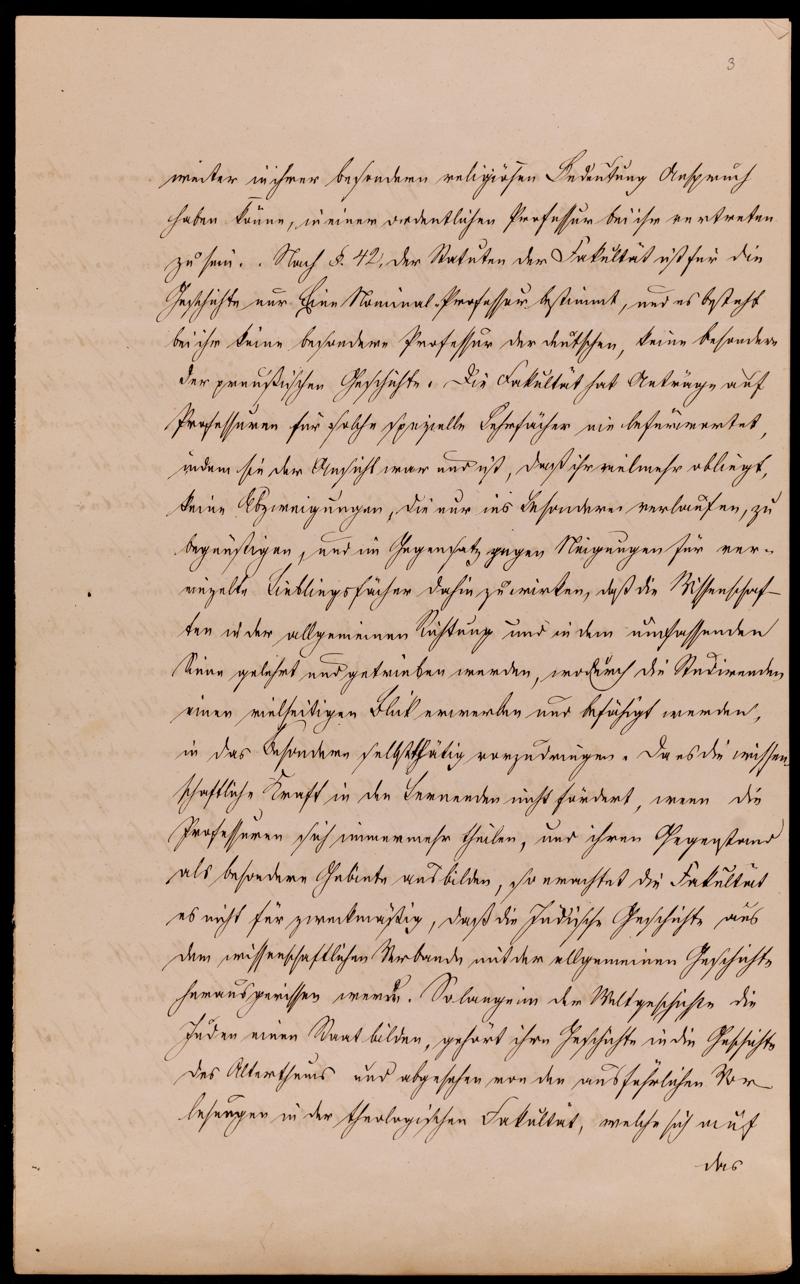 3
weiter in ihrer besondern religiösen Bedeutung Anspruch
haben könne, in einer ordentlichen Professur bei ihr vertreten
zu sein. Nach §. 42. der Statuten der Fakultät ist für die
Geschichte nur Eine Nominal-Professur bestimmt, und es besteht
bei ihr keine besondere Professur der deutschen, keine besondere
der preußischen Geschichte. Die Fakultät hat Anträge auf
Professuren für solche spezielle Lehrfächer nie befürwortet,
indem sie der Ansicht war und ist, daß ihr vielmehr obliegt,
keine Abzweigungen, die nur ins Besondere verlaufen, zu
begünstigen, und im Gegensatz gegen Neigungen für ver-
einzelte Lieblingsfächer dahin zu wirken, daß die Wissenschaf-
ten in der allgemeinen Richtung und in dem umfassenden
Sinne gelehrt und getrieben werden, wodurch die Studirenden
einen vielseitigen Blick erwerben und befähigt werden,
in das Besondere selbstthätig vorzudringen. Da es die wissen-
schaftliche Kraft in den Lernenden nicht fördert, wenn die
Professuren sich immermehr theilen, und ihren Gegenstand
als besondere Gebiete ausbilden, so erachtet die Fakultät
es nicht für zweckmäßig, daß die Jüdische Geschichte aus
dem wissenschaftlichen Verbande mit der allgemeinen Geschichte
herausgerissen werde. So lange in der Weltgeschichte die
Juden einen Staat bilden, gehört ihre Geschichte in die Geschichte
des Alterthums und abgesehen von den ausführlichen Vor-
lesungen in der theologischen Fakultät, welche sich auf
das